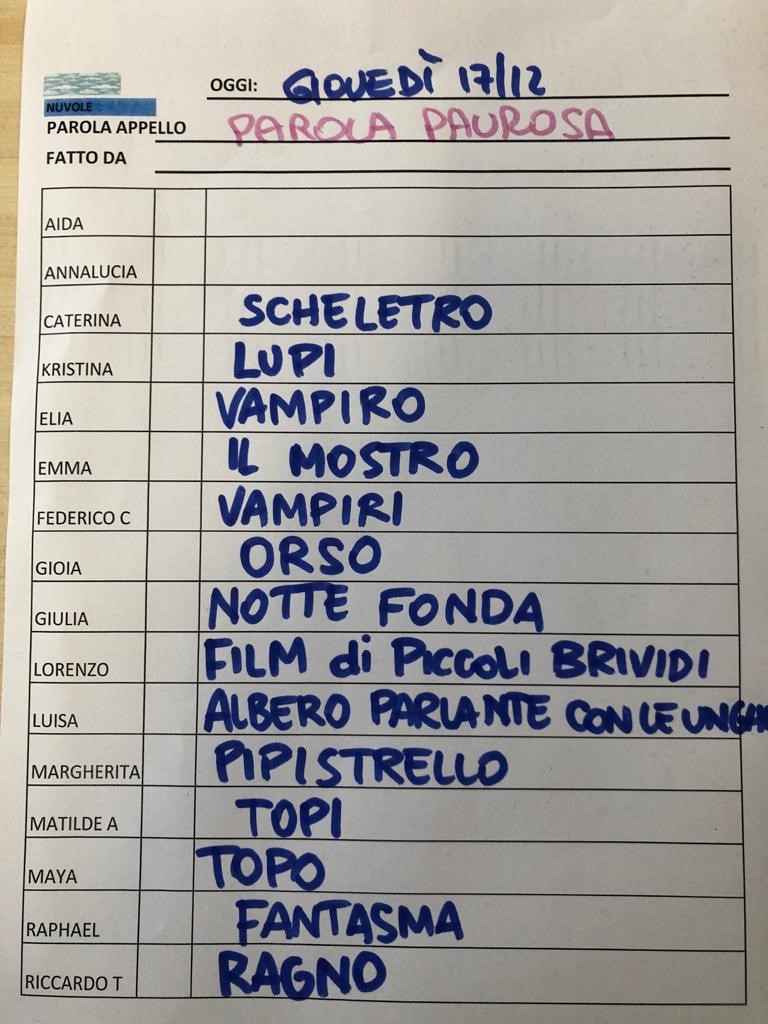 OGGI: GIOVEDÌ 17/12
NUVOLE
PAROLA APPELLO PAROLA PAUROSA
FATTO DA
AIDA
ANNALUCIA
CATERINA SCHELETRO
KRISTINA LUPI
ELIA VAMPIRO
EMMA IL MOSTRO
FEDERICO C VAMPIRI
GIOIA ORSO
GIULIA NOTTE FONDA
LORENZO FILM di PiCCOLi BRIVIDI
LUISA ALBERO PARLANTE CON LE
MARGHERITA PIPISTRELLO
MATILDE A TOPI
MAYA TOPO
RAPHAEL FANTASMA
RICCARDO T RAGNO